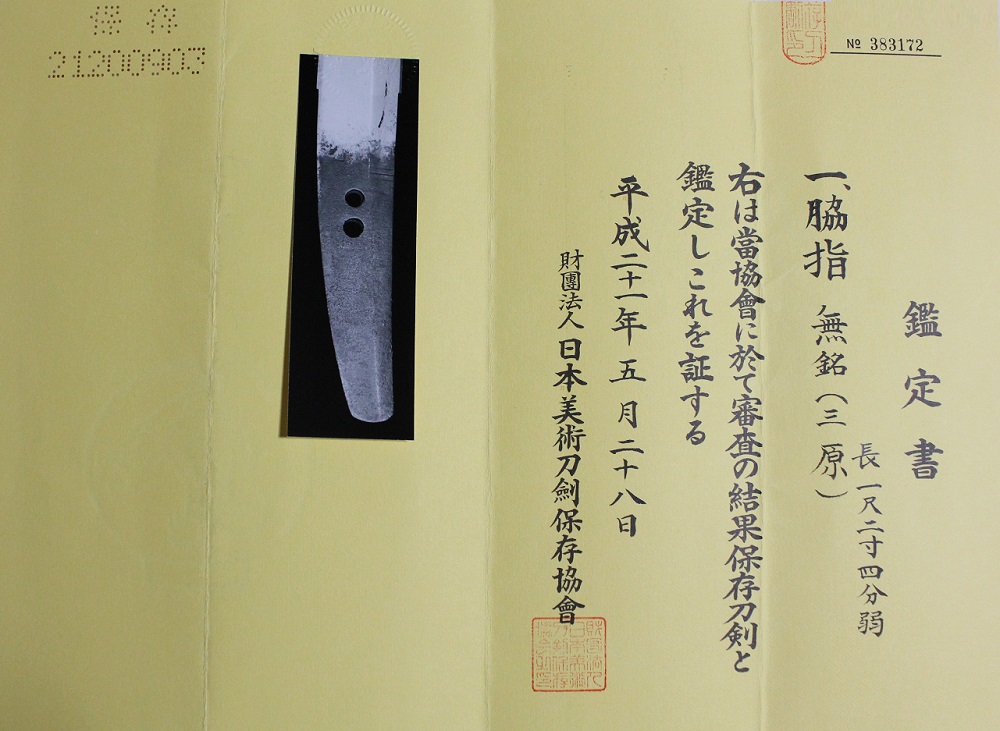 保存
21200903
№ 383172
鑑定書
一、脇指 無銘(三原)
長一尺二寸四分弱
右は當協會に於て審査の結果保存刀剣と
鑑定しこれを証する
平成二十一年五月二十八日
財團法人日本美術刀劍保存協會